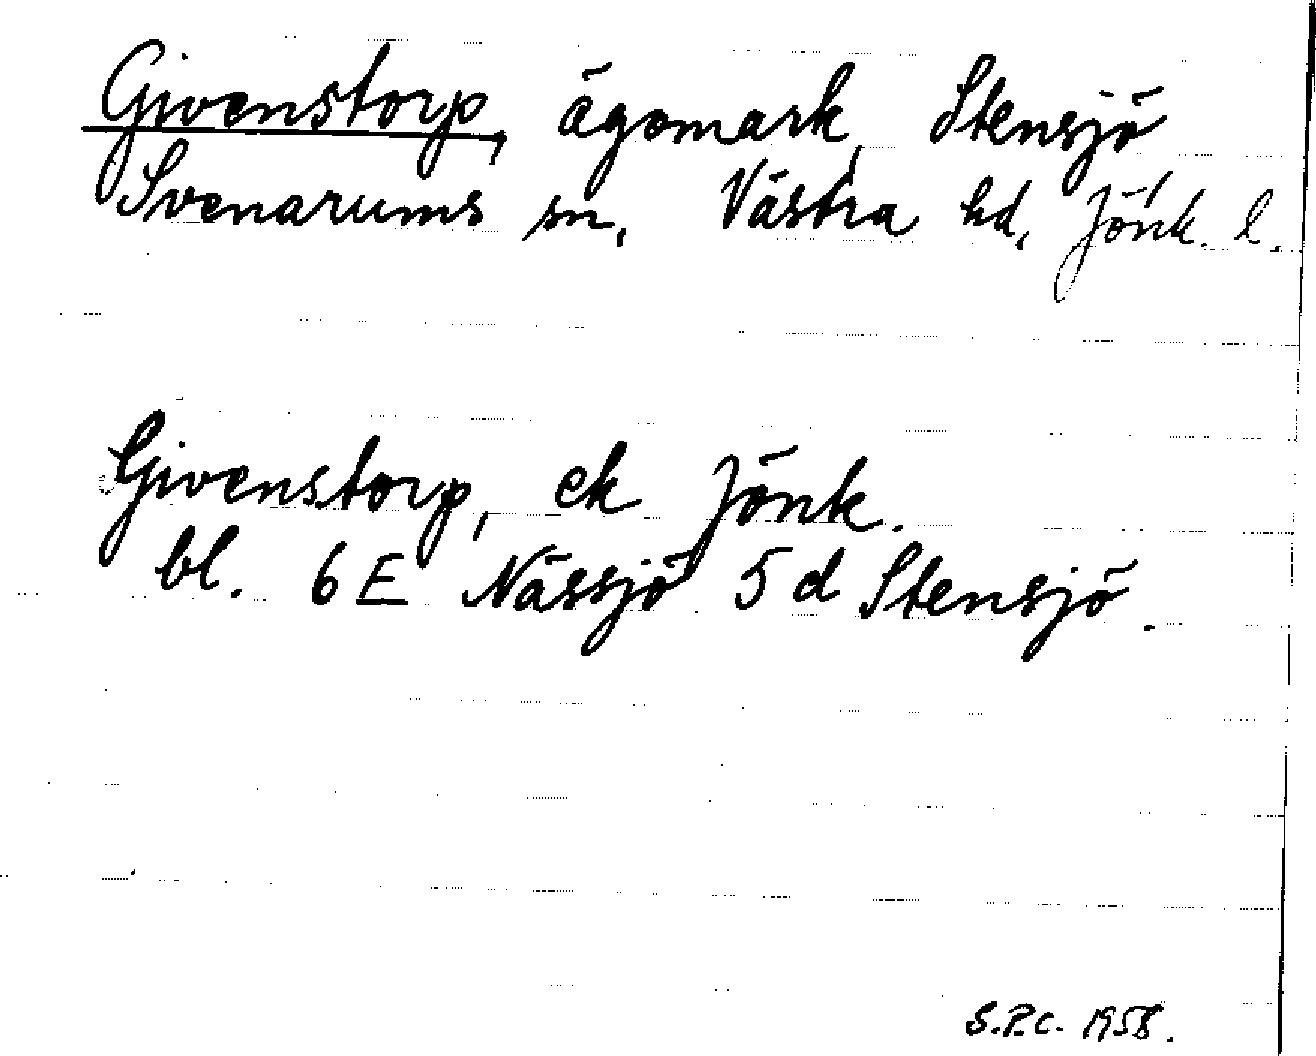 Givenstorp, ägomark, Stensjö
Svenarums sn, Västra hd, Jönk. l.
Givenstorp, ek Jönk.
bl. 6E Nässjö 5d Stensjö.
S.P.C. 1958.